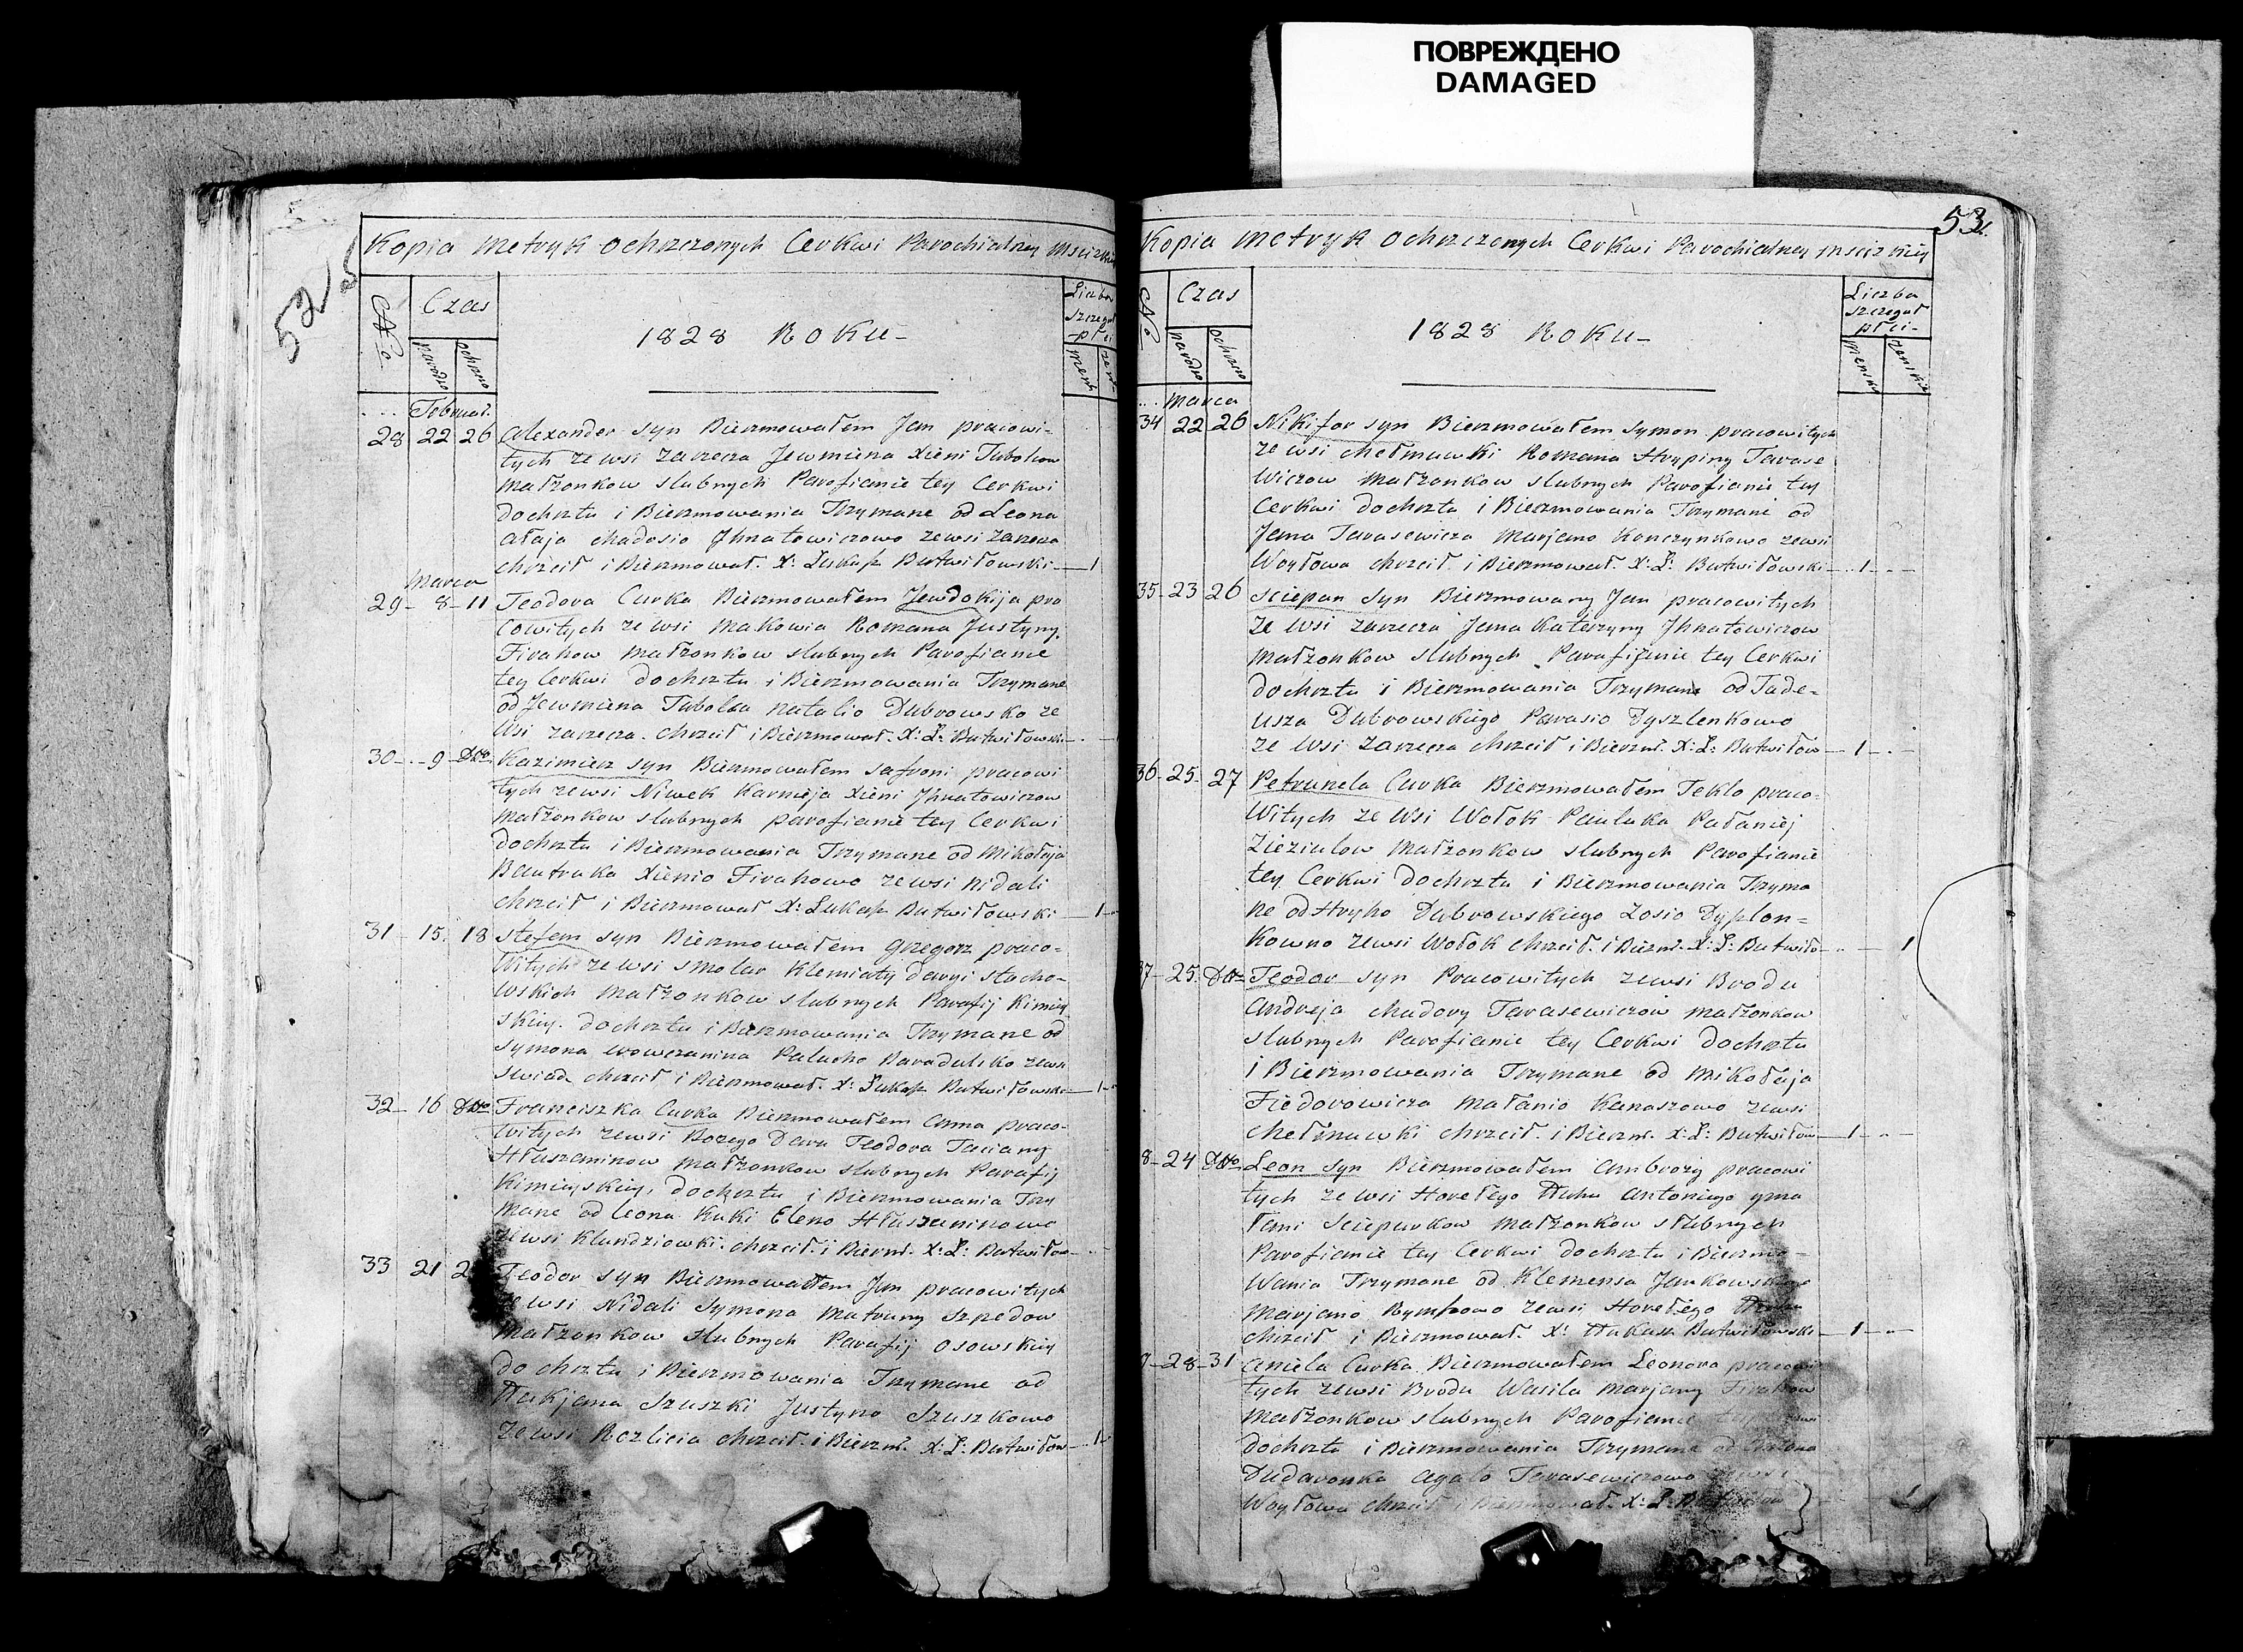 ПОВРЕЖДЕНО
DAMAGED
52
Kopia Metryk Ochrzczonych Cerkwi Parochialney
No
Czas
narodze
ochrzcz
1828 Roku
Liczba
szczegul
płci
męsk
żeń
Februar.
28 22 26 Alexander syn Bierzmowałem Jan pracowi-
tych ze wsi Zarzecza Jewmiena Xieni Tabolow
Małżonkow slubnych Parafianie tey Cerkwi
do chrztu i Bierzmowania Trzymane od Leona
Ałaja Chadosio Jhnatowiczowo ze wsi Zarzecza
chrzcił i Bierzmował. X: Łukasz Butwiłowski 1
Marca
29 8 11 Teodora Curka Bierzmowałem Jewdokija pra
cowitych ze wsi Makowia Romana Justyny
Firahow Małżonkow slubnych Parafianie
tey Cerkwi do chrztu i Bierzmowania Trzymane
od Jewmiena Tabola Natalio Dubrowsko ze
wsi Zarzecza. chrzcił i Bierzmował. X: Ł: Butwiłowski 1
30 9 Dtto Kazimierz syn Bierzmowałem Safroni pracowi
tych ze wsi Niwek Karnieja Xieni Jhnatowiczow
Małżonkow slubnych parafianie tey Cerkwi
do chrztu i Bierzmowania Trzymane od Mikołaja
Bautruka Xienio Firahowo ze wsi Nidali
chrzcił i Bierzmował X: Łukasz Butwiłowski 1
31 15 18 Stefan syn Bierzmowałem Grzegorz praco-
witych ze wsi Smolar Klemiaty Daryi Stacho-
wskich Małżonkow slubnych Parafij Kimiy
skiey. do chrztu i Bierzmowania Trzymane od
Symona Palucho ze wsi
chrzcił i Bierzmował. X: Łukasz Butwiłowski 1
32 16 Dtto Franciszka Curka Bierzmowałem Anna praco-
witych ze wsi Bożego Daru Teodora Taciany
Hłuszaninow Małżonkow slubnych Parafij
Kimiyskiey, do chrztu i Bierzmowania Trzy
mane od Leona Kuki Eleno Hłuszaninowo
ze wsi Klundziowki. chrzcił. i Bierzm. X: Ł: Butwiłow
33 21 2 Teodor syn Bierzmowałem Jan pracowitych
ze wsi Nidali Symona Matruny Szpedow
Małżonkow slubnych Parafij Osowskiey
do chrztu i Bierzmowania Trzymane od
Łukjana Szuszki Justyno Szuszkowo
ze wsi chrzcił. i Bierzm. X: Ł: Butwiłow 1
53
Kopia Metryk Ochrzczonych Cerkwi Parochialney
No
Czas
narodzo
ochrzczo
1828 Roku
Liczba
szczegul
płci
męska
żeńska
Marca
34 22 26 Nikifor syn Bierzmowałem Symon pracowitych
ze wsi Chełmuwki Romana Hrypiny Tarase
wiczow Małżonkow slubnych Parafianie tey
Cerkwi do chrztu i Bierzmowania Trzymane od
Jana Tarasewicza Marjano Konczynkowo ze wsi
Woytowa chrzcił. i Bierzmował. X: Ł: Butwiłowski 1
35 23 26 Sciepan syn Bierzmowany Jan pracowitych
ze wsi Zarzecza Jana Katerzyny Jhnatowiczow
Małżonkow slubnych Parafianie tey Cerkwi
do chrztu i Bierzmowania Trzymane od Tade-
usza Dubrowskiego Parasio Dyszlenkowo
ze wsi Zarzecza chrzcił i Bierzm. X: Ł: Butwiłow 1
36 25 27 Petrunela Curka Bierzmowałem Teklo praco-
witych ze wsi Wołok Pauluka Pałaniej
Zieziulow Małżonkow slubnych Parafianie
tey Cerkwi do chrztu i Bierzmowania Trzyma
ne od Hryho Dubrowskiego Zosio
kowno ze wsi Wołok chrzcił. i Bierzm. X: Ł: Butwiło 1
37 25 Dtto Teodor syn Pracowitych ze wsi Brodu
Andreja Chadory Tarasewiczow Małżonkow
slubnych Parafianie tey Cerkwi do chrztu
i Bierzmowania Trzymane od Mikołaja
Fiedorowicza Małanio Kanaszowo ze wsi
Chełmuwki chrzcił. i Bierzm. X: Ł: Butwiłow 1
8 24 Dtto Leon syn Bierzmowałem Ambroży pracowi
tych ze wsi Horełego Łuhu Antoniego
Sciepurkow Małżonkow słubnych
Parafianie tey Cerkwi do chrztu i Bierzmo-
wania Trzymane od Klemensa
Marjano ze wsi Horełego
chrzcił i Bierzmował. X: Łukasz Butwiłowski 1
9 28 31 Aniela Curka Bierzmowałem Leonora pracowi
tych ze wsi Brodu Wasila Marjany Firahow
Małżonkow slubnych Parafianie
do chrztu i Bierzmowania Trzymane od
Dudaronka Agato Tarasewiczowo
Woytowa chrzcił i Bierzmował. X: Ł: 1